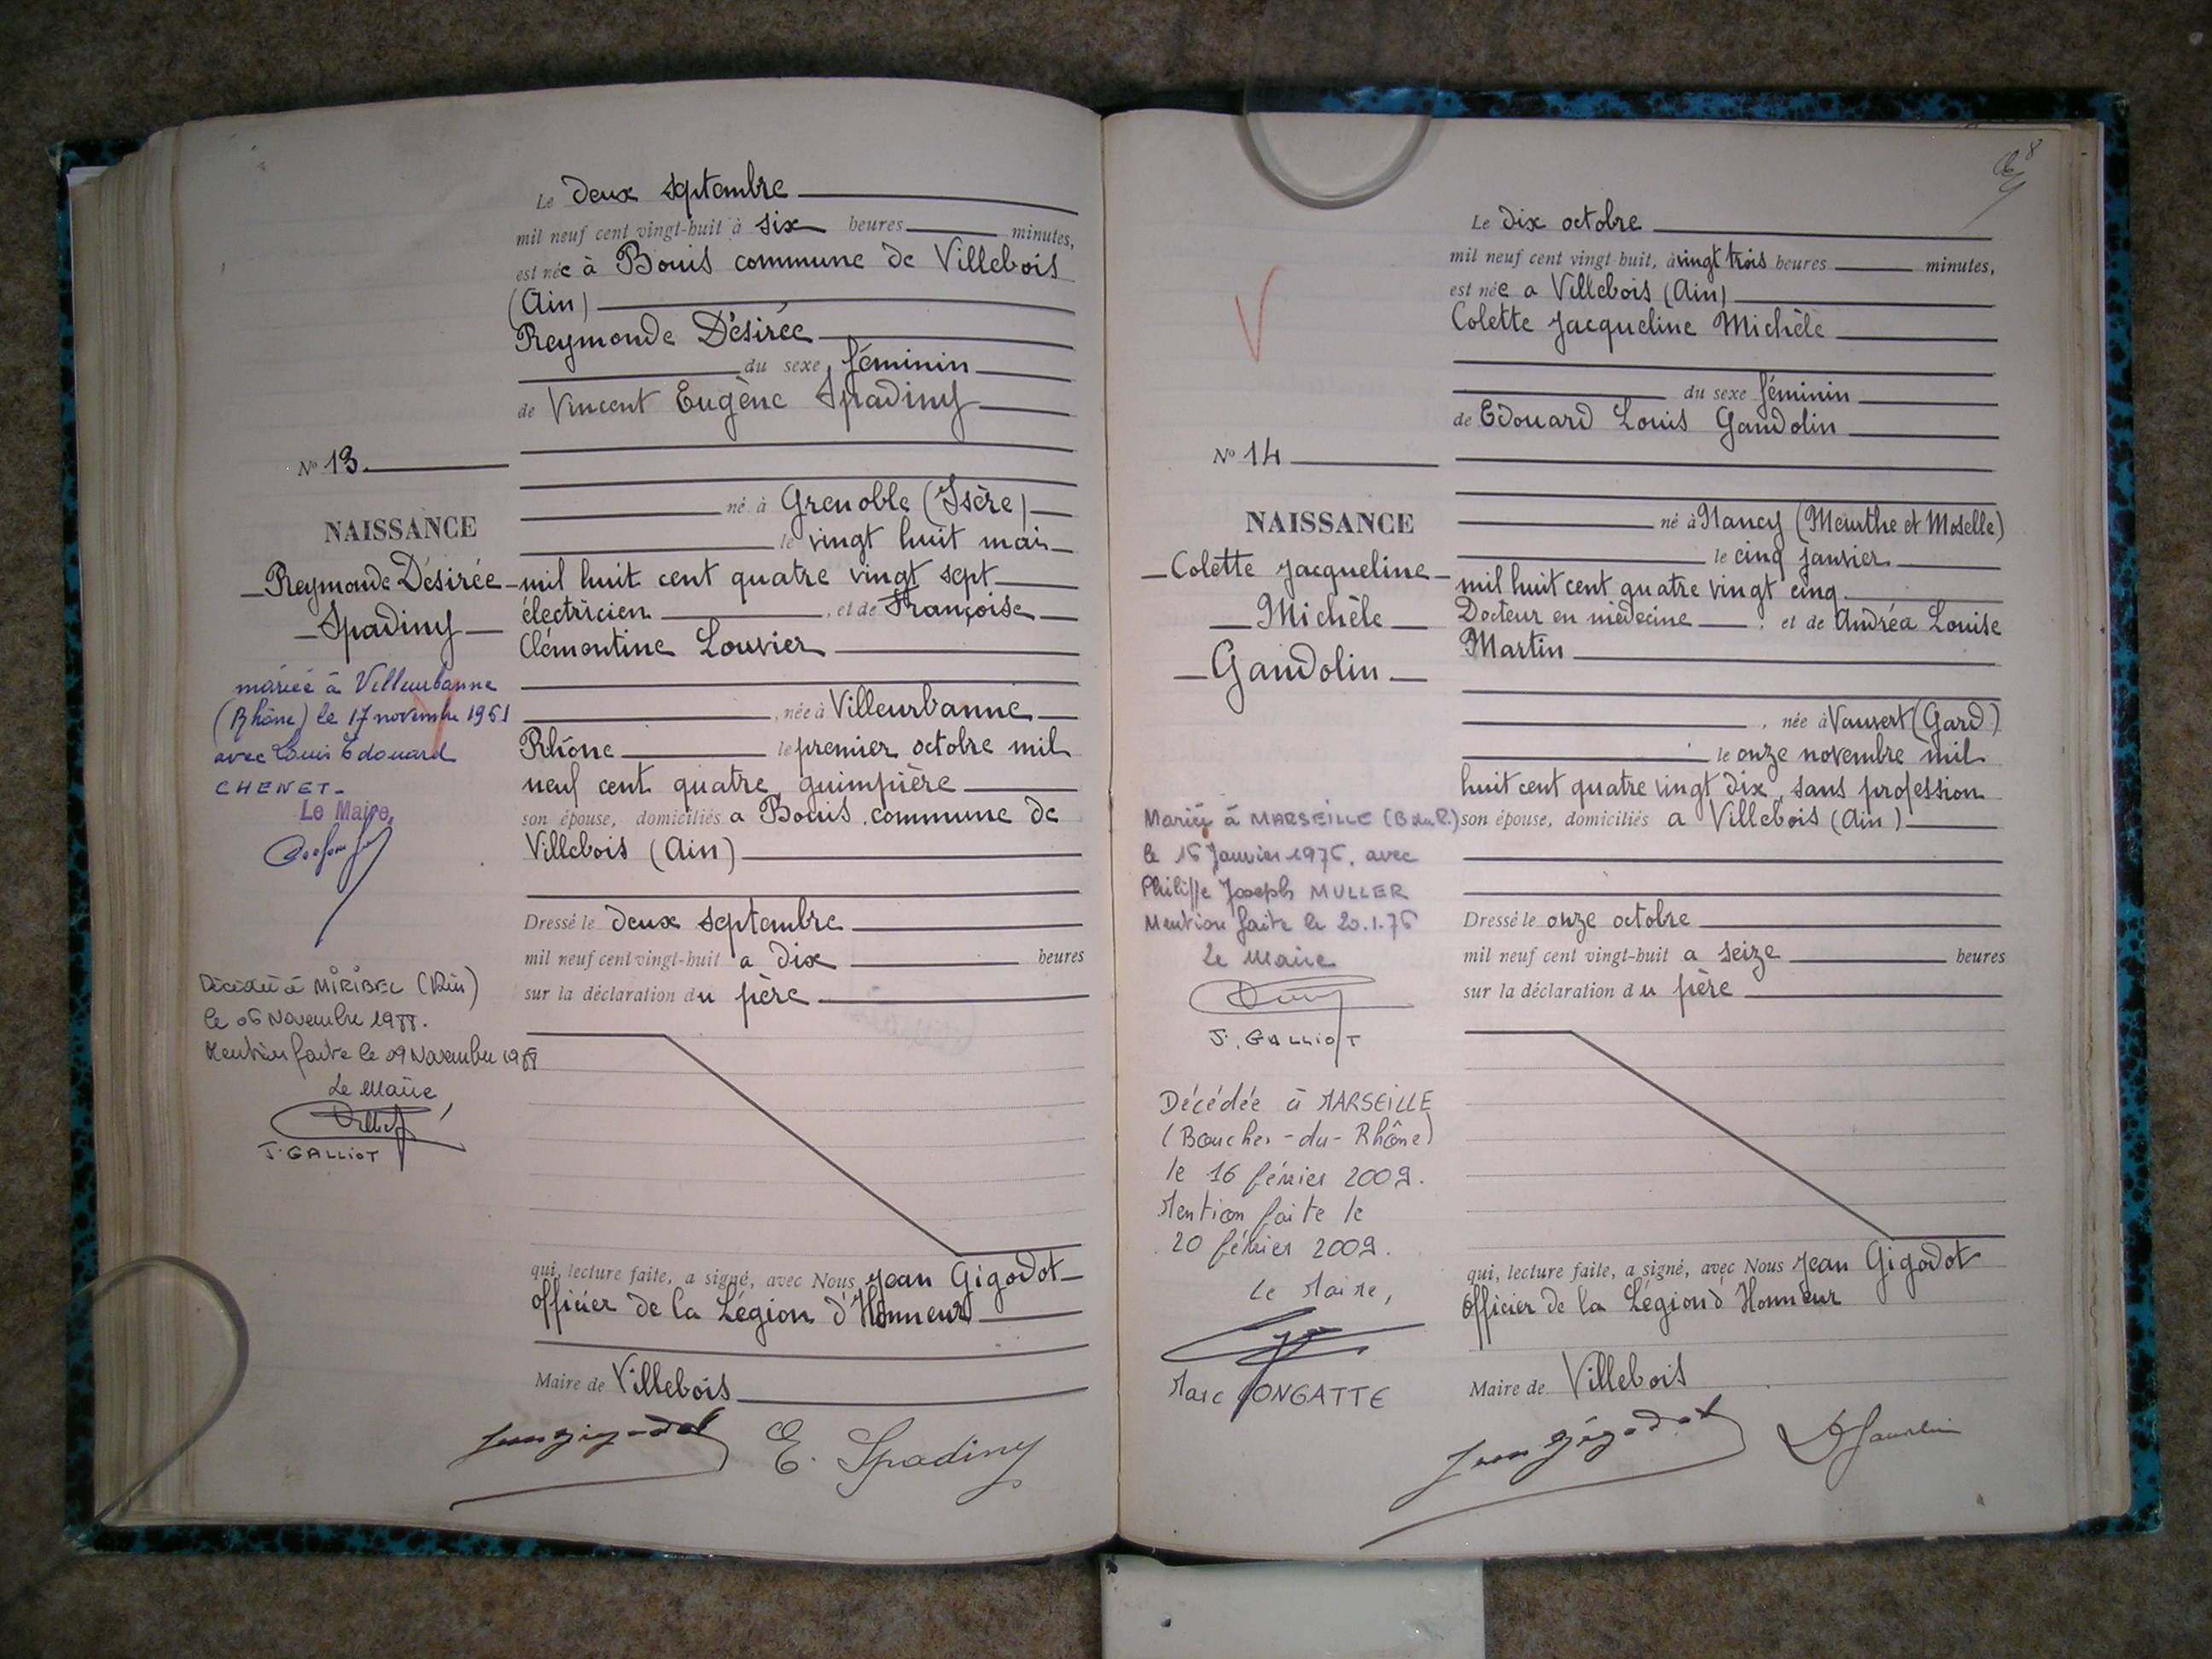 Le deux septembre
mil neuf cent vingt-huit à six heures minutes,
est née à Bouis commune de Villebois
(Ain)
Reymonde Désirée
du sexe féminin
de Vincent Eugène Spadiny
N° 13
né à Grenoble (Isère)
NAISSANCE
le vingt huit mai
Reymonde Désirée
mil huit cent quatre vingt sept
Spadiny
électricien , et de Françoise
Clémentine Louvier
mariée à Villeurbanne
(Rhône) le 17 novembre 1951
avec Louis Edouard
CHENET
Le Maire,
, née à Villeurbanne
Rhône le premier octobre mil
neuf cent quatre, guimpière
son épouse, domiciliés à Bouis, commune de
Villebois (Ain)
Dressé le deux septembre
mil neuf cent vingt-huit à dix heures
sur la déclaration du père
Décédée à MIRIBEL (Ain)
le 06 Novembre 1988.
Mention faite le 09 Novembre 1988
Le Maire
J. GALLIOT
qui, lecture faite, a signé, avec Nous Jean Gigodot
officier de la Légion d'Honneur
Maire de Villebois
Jean Gigodot E. Spadiny
8
Le dix octobre
mil neuf cent vingt-huit, à vingt trois heures minutes,
est née à Villebois (Ain)
Colette Jacqueline Michèle
du sexe féminin
de Edouard Louis Gandolin
N° 14
né à Nancy (Meurthe et Moselle)
NAISSANCE
le cinq janvier
Colette Jacqueline
mil huit cent quatre vingt cinq
Michèle
Docteur en médecine , et de Andréa Louise
Gandolin
Martin
, née à Vauvert (Gard)
le onze novembre mil
huit cent quatre vingt dix, sans profession
son épouse, domiciliés à Villebois (Ain)
Mariée à MARSEILLE (B du R.)
le 16 Janvier 1976, avec
Philippe Joseph MULLER
Mention faite le 20.1.76
Le Maire
J. GALLIOT
Dressé le onze octobre
mil neuf cent vingt-huit à seize heures
sur la déclaration du père
Décédée à MARSEILLE
(Bouches-du-Rhône)
le 16 février 2009.
Mention faite le
20 février 2009.
Le Maire,
Marc LONGATTE
qui, lecture faite, a signé, avec Nous Jean Gigodot
Officier de la Légion d'Honneur
Maire de Villebois
Jean Gigodot